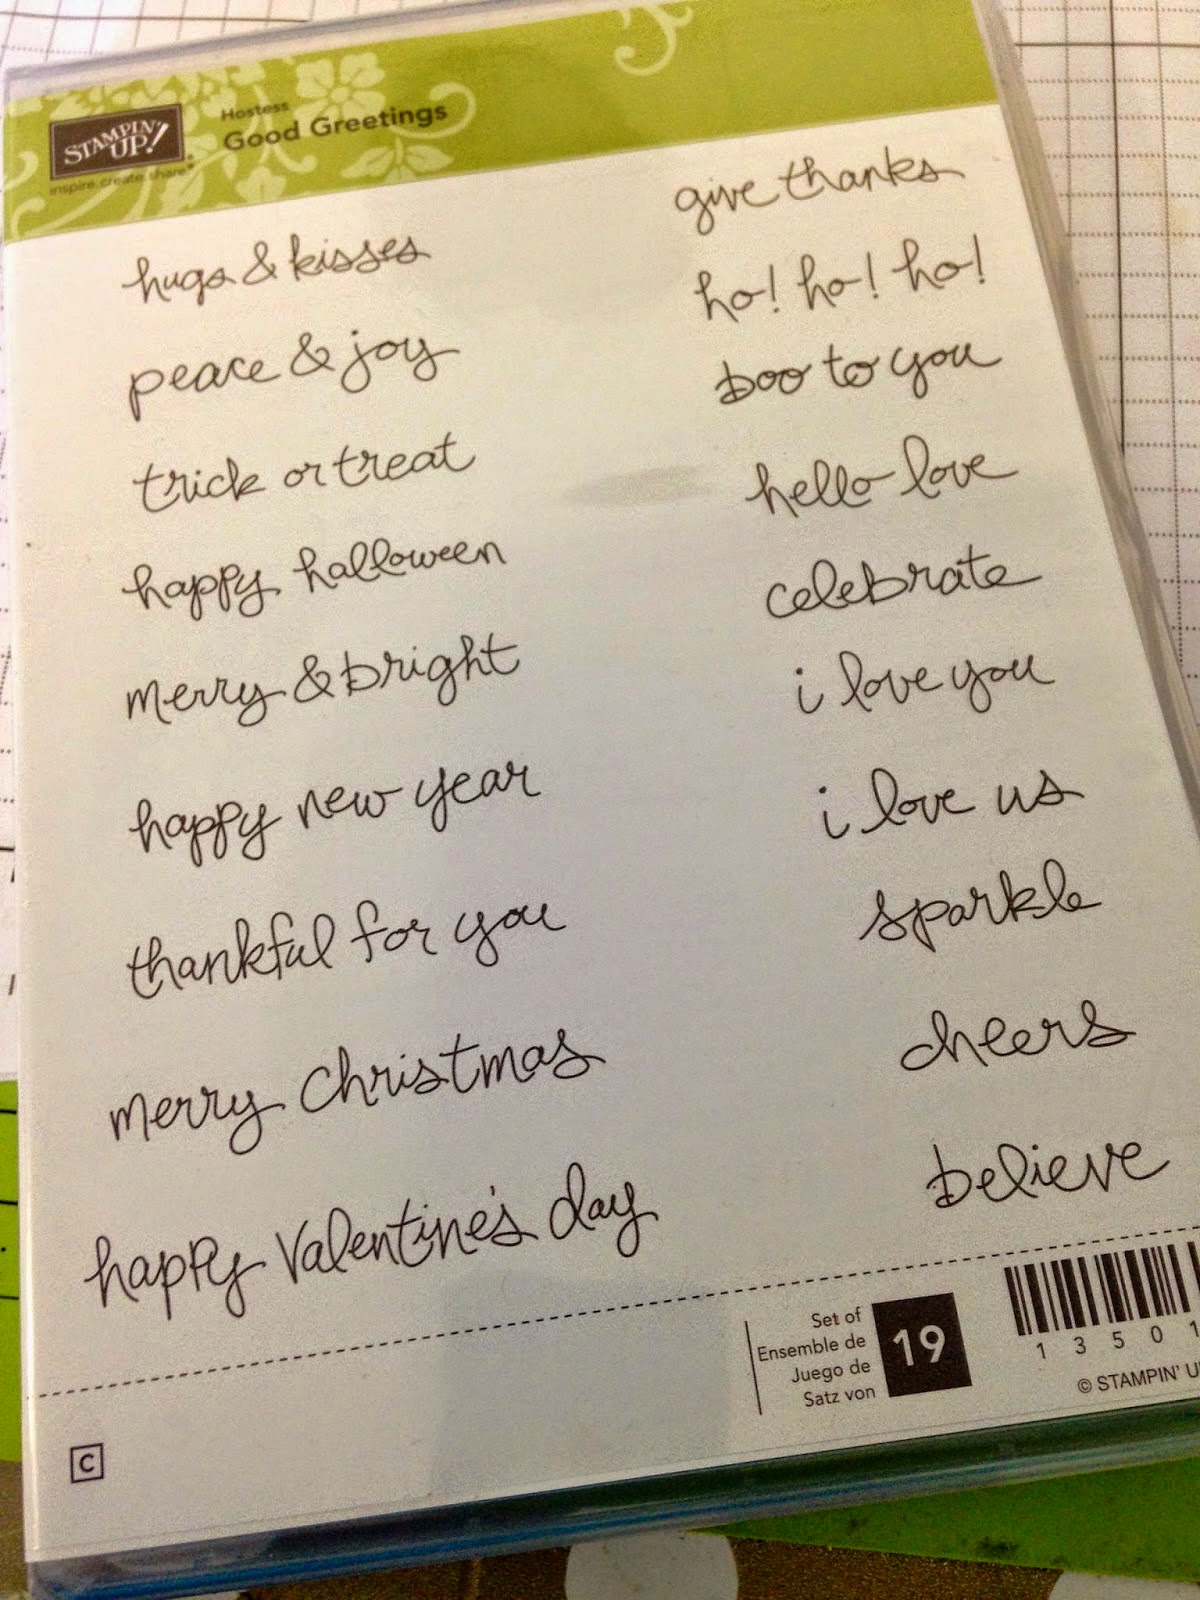 STAMPIN' UP!
inspire.create.share
Hostess
Good Greetings
hugs & kisses
peace & joy
trick or treat
happy halloween
merry & bright
happy new year
thankful for you
merry Christmas
happy Valentine's day
give thanks
ho! ho! ho!
boo to you
hello love
celebrate
i love you
i love us
sparkle
cheers
believe
Set of
Ensemble de
Juego de
Satz von
19
1 3 5 0 1
© STAMPIN' U
C